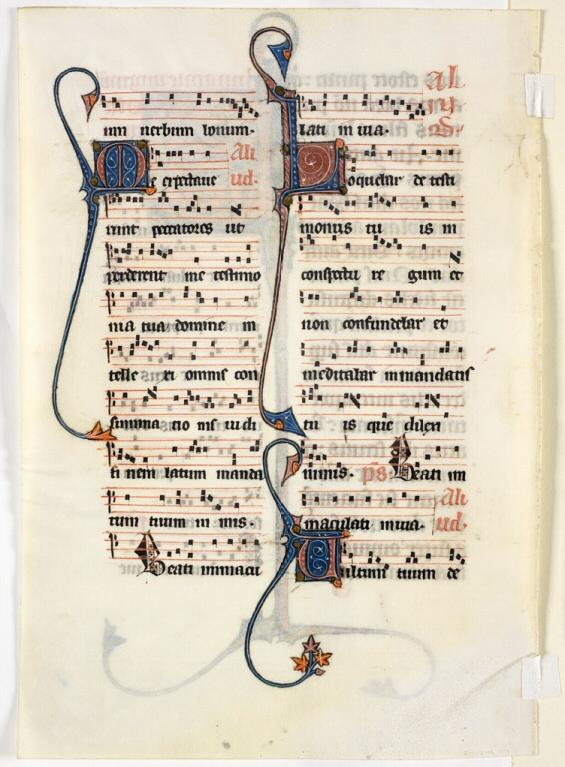 um verbum bonum.
Me expectave Ali
runt peccatores ut ud.
perderent me testimo
nia tua domine in
tellexi omnis con
summa tio nis vi di
finem latum manda
tum tuum ni mis.
Beati immacu
lati in via. Ali
Loquebar de testi
moniis tu is in
conspectu re gum et
non confundebar et
meditabar in mandatis
tu is que dilexi
nimis. ps Beati im
maculati in via. Ali
Vultum tuum de ud.